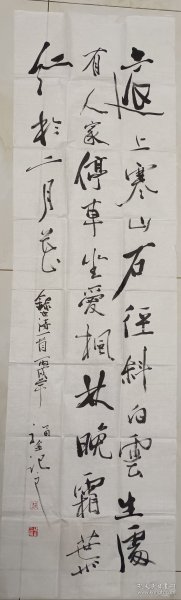 遠上寒山石徑斜白雲生處
有人家停車坐愛楓林晚霜葉
紅於二月花